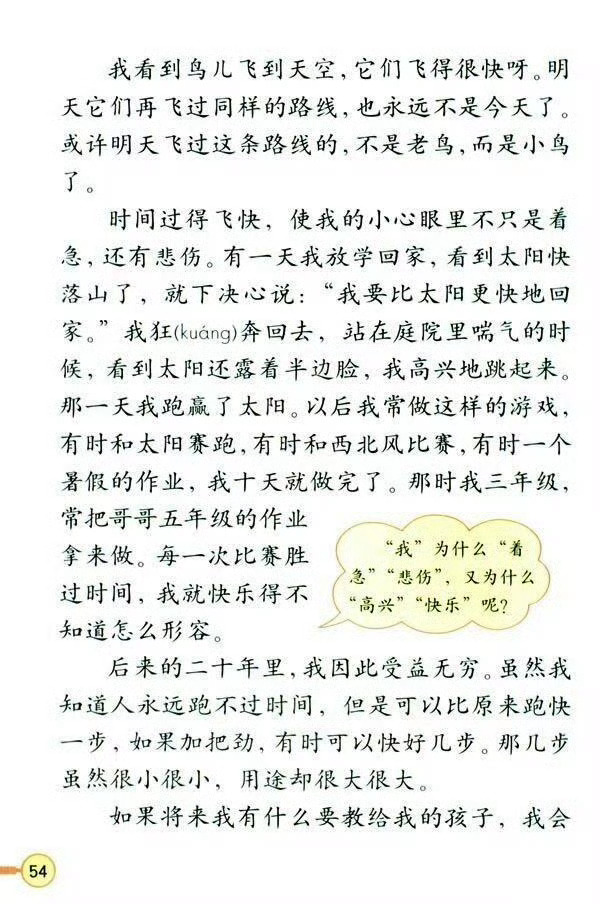 我看到鸟儿飞到天空，它们飞得很快呀。明
天它们再飞过同样的路线，也永远不是今天了。
或许明天飞过这条路线的，不是老鸟，而是小鸟
了。
时间过得飞快，使我的小心眼里不只是着
急，还有悲伤。有一天我放学回家，看到太阳快
落山了，就下决心说：“我要比太阳更快地回
家。”我狂(kuáng)奔回去，站在庭院里喘气的时
候，看到太阳还露着半边脸，我高兴地跳起来。
那一天我跑赢了太阳。以后我常做这样的游戏，
有时和太阳赛跑，有时和西北风比赛，有时一个
暑假的作业，我十天就做完了。那时我三年级，
常把哥哥五年级的作业
拿来做。每一次比赛胜
过时间，我就快乐得不
知道怎么形容。
“我”为什么“着
急”“悲伤”，又为什么
“高兴”“快乐”呢？
后来的二十年里，我因此受益无穷。虽然我
知道人永远跑不过时间，但是可以比原来跑快
一步，如果加把劲，有时可以快好几步。那几步
虽然很小很小，用途却很大很大。
如果将来我有什么要教给我的孩子，我会
54